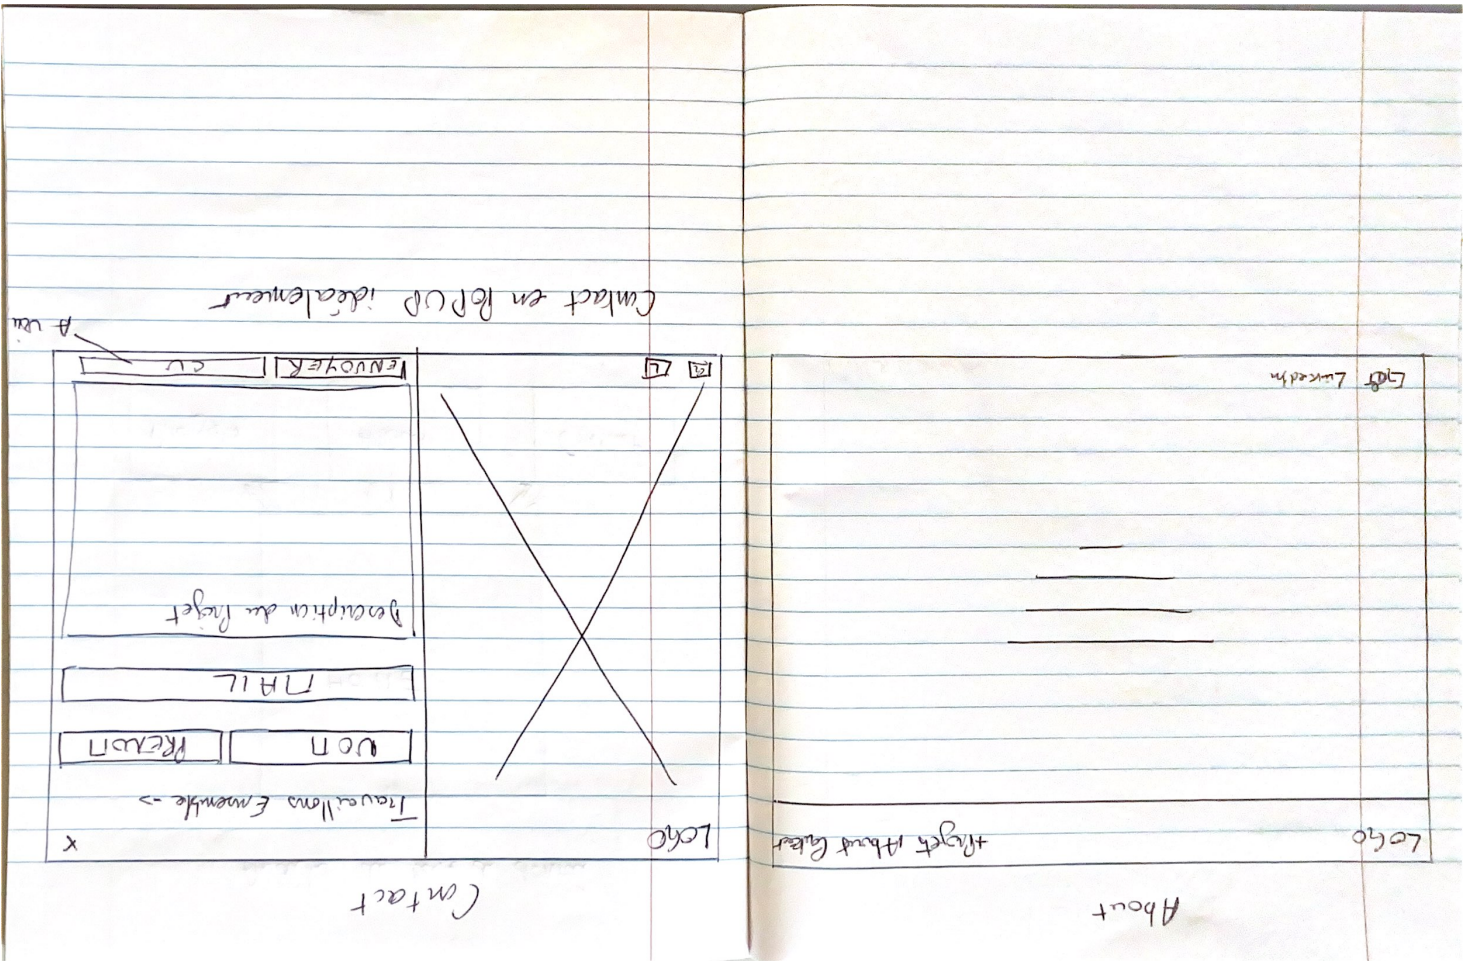 About
LOGO
+Projets About Contact
Git LinkedIn
Contact
LOGO
X
Travaillons Ensemble ->
NOM
PRENOM
MAIL
Description du Projet
G
L
ENVOYER
CV
A voir
Contact en POPUP idéalement